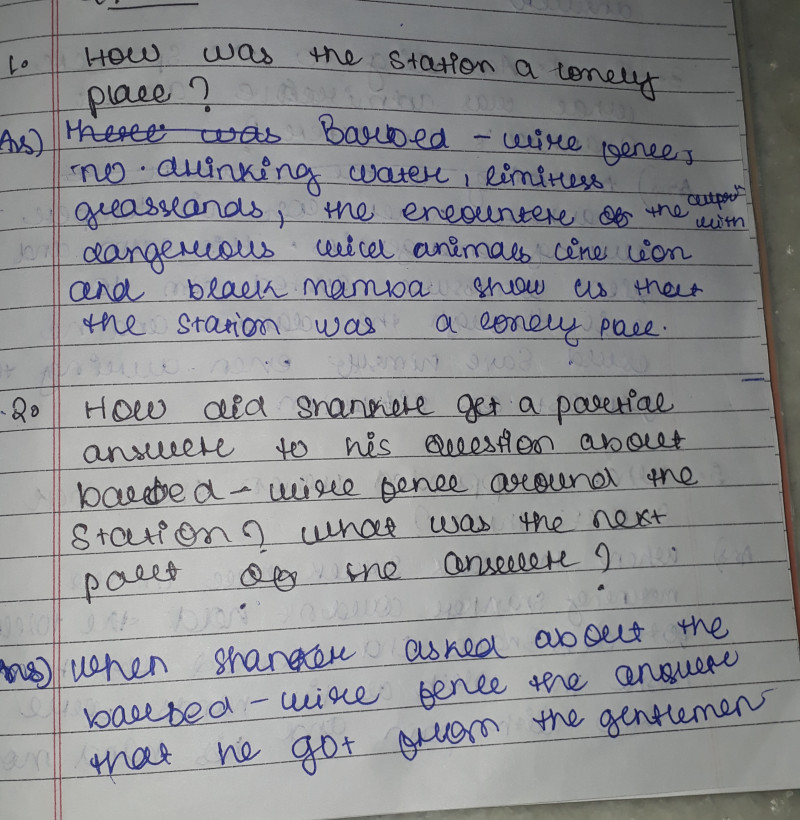 1. How was the station a lonely
place?
Ans) There was Barbed - wire fence,
no drinking water, limitless
grasslands, the encounter of the with
dangerous wild animals like lion
and black mamba show us that
the station was a lonely pace.
2. How did Shanker get a partial
answer to his question about
barbed - wire fence around the
station? What was the next
part of the answer?
Ans) When Shanker asked about the
barbed - wire fence the answer
that he got from the gentlemen